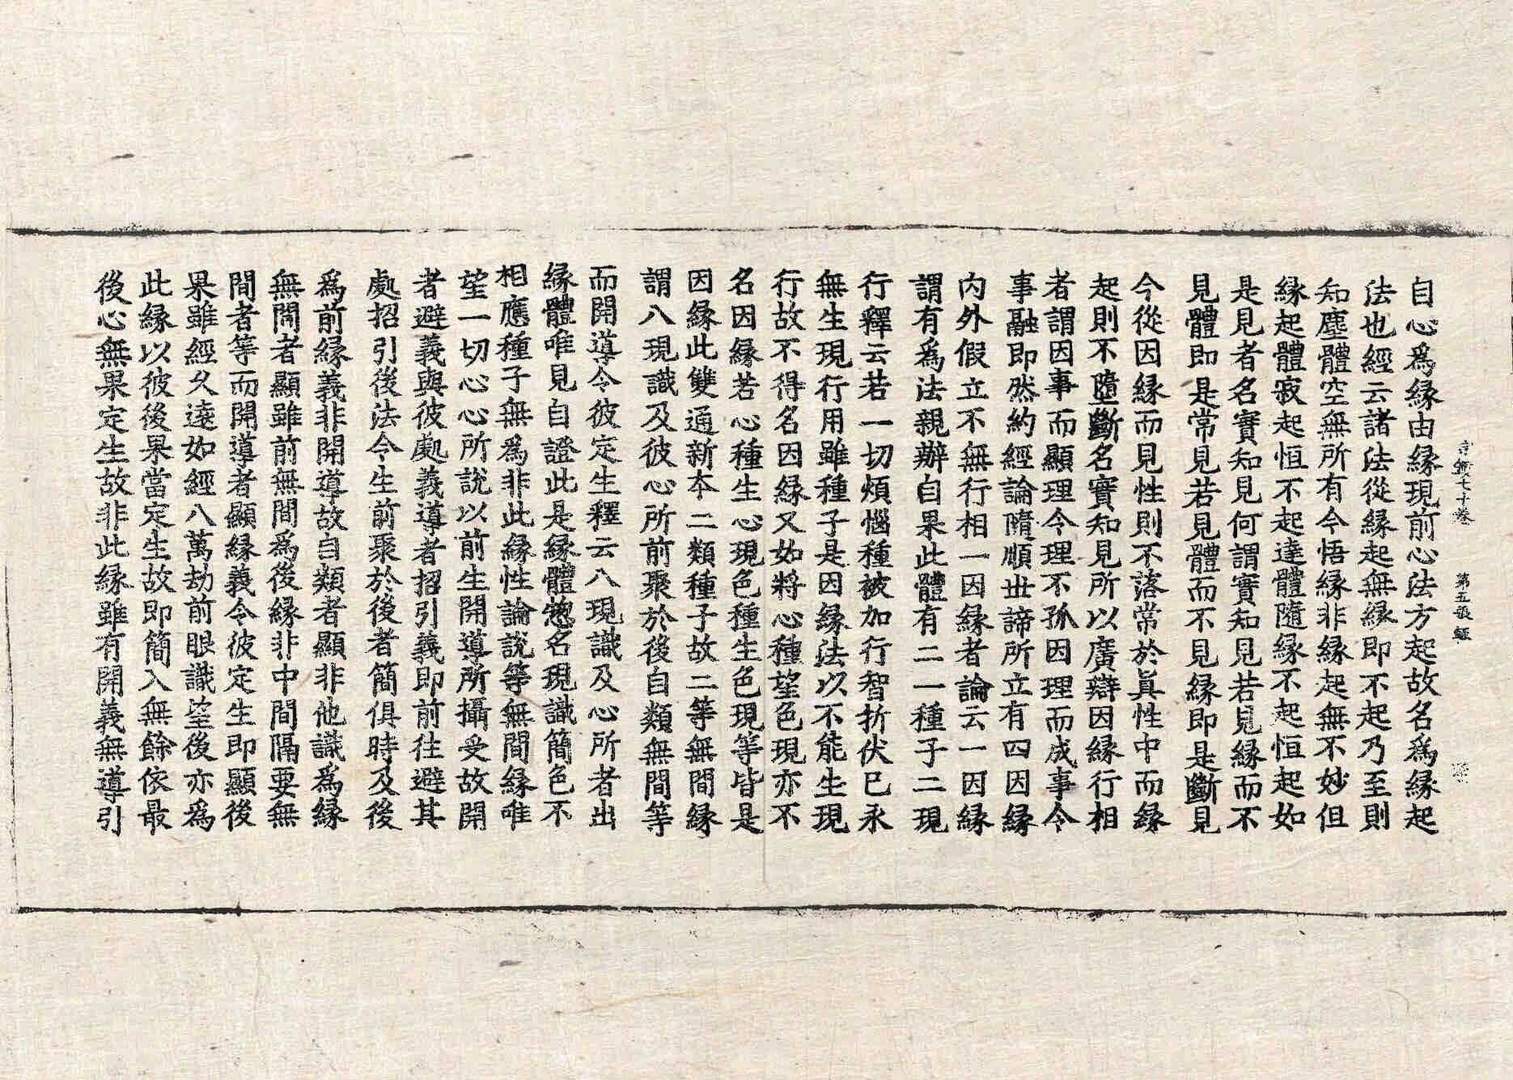 宗鏡七十卷　第五張　經
自心爲緣由緣現前心法方起故名爲緣起
法也經云諸法從緣起無緣即不起乃至則
知塵體空無所有今悟緣非緣起無不妙但
緣起體寂起恒不起達體隨緣不起恒起如
是見者名實知見何謂實知見若見緣而不
見體即是常見若見體而不見緣即是斷見
今從因緣而見性則不落常於眞性中而緣
起則不墮斷名實知見所以廣辯因緣行相
者謂因事而顯理令理不孤因理而成事令
事融即然約經論隨順世諦所立有四因緣
內外假立不無行相一因緣者論云一因緣
謂有爲法親辦自果此體有二一種子二現
行釋云若一切煩惱種被加行智折伏已永
無生現行用雖種子是因緣法以不能生現
行故不得名因緣又如將心種望色現亦不
名因緣若心種生心現色種生色現等皆是
因緣此雙通新本二類種子故二等無間緣
謂八現識及彼心所前聚於後自類無間等
而開導令彼定生釋云八現識及心所者出
緣體唯見自證此是緣體惣名現識簡色不
相應種子無爲非此緣性論說等無間緣唯
望一切心心所說以前生開導所攝受故開
者避義與彼處義導者招引義即前往避其
處招引後法令生前聚於後者簡俱時及後
爲前緣義非開導故自類者顯非他識爲緣
無間者顯雖前無間爲後緣非中間隔要無
間者等而開導者顯緣義令彼定生即顯後
果雖經久遠如經八萬劫前眼識望後亦爲
此緣以彼後果當定生故即簡入無餘依最
後心無果定生故非此緣雖有開義無導引